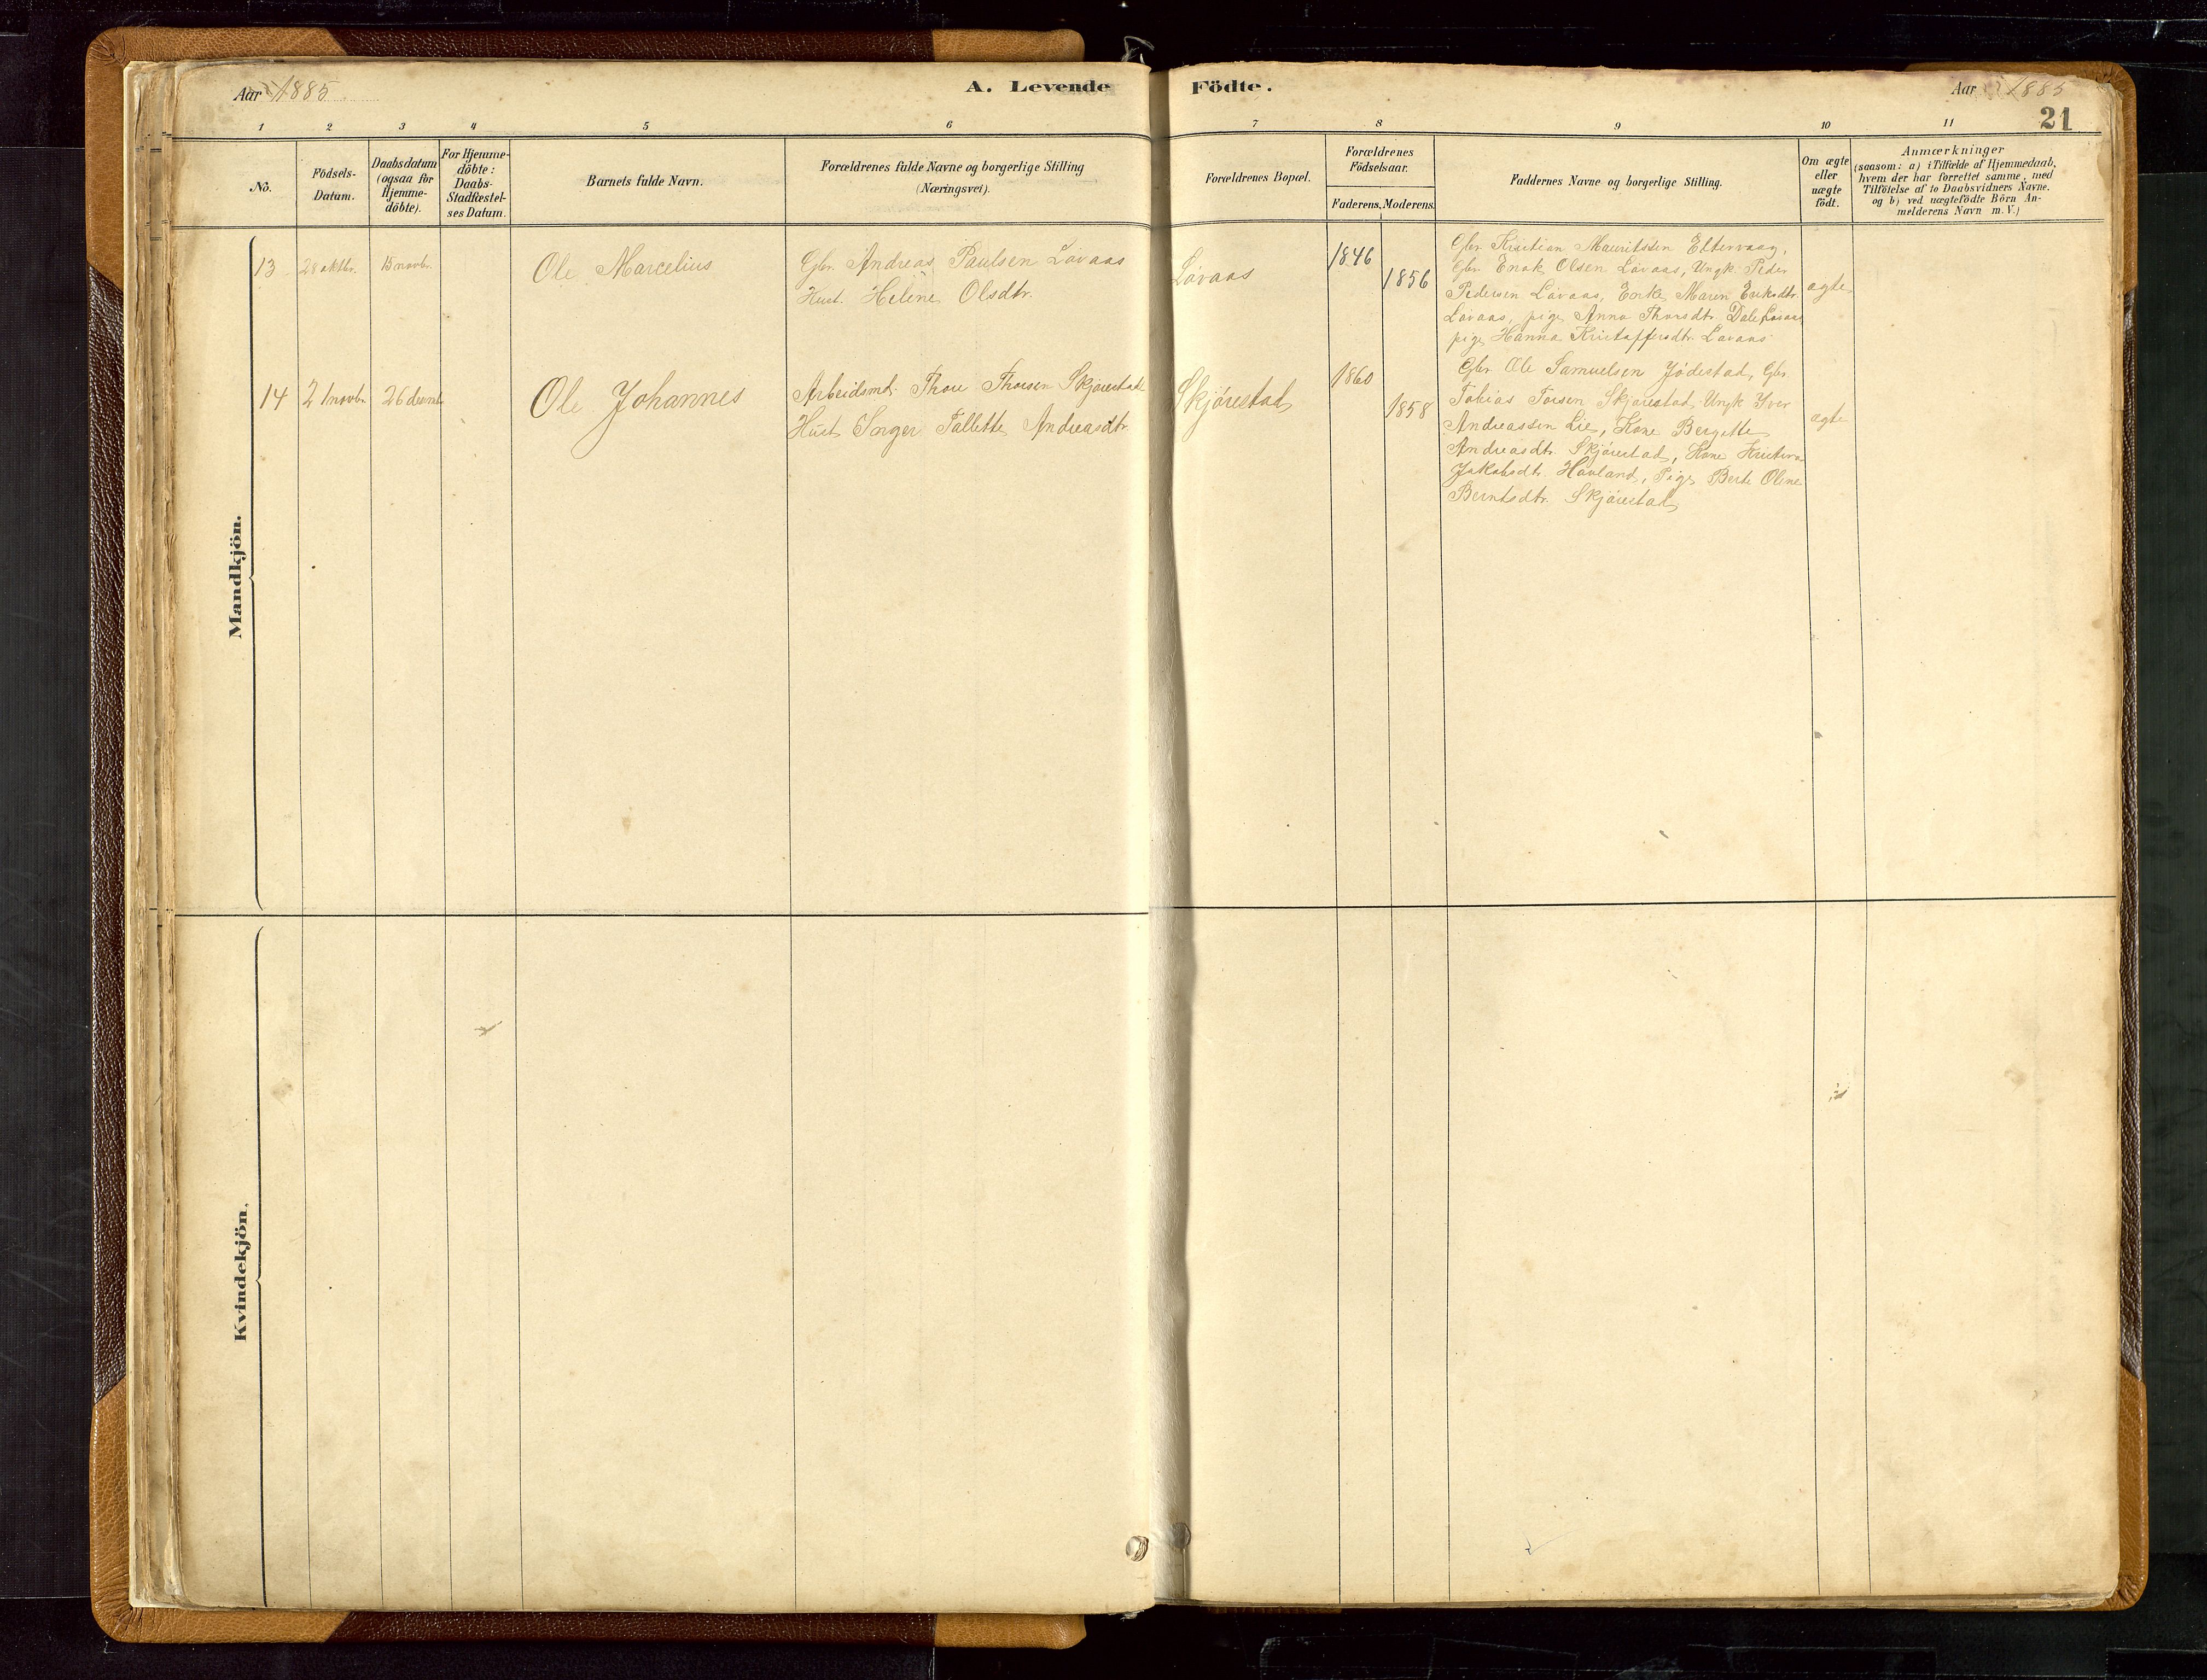 Aar 1885
A. Levende Födte.
Aar 1885
21
1 2 3 4 5 6 7 8 9 10 11
No.
Födsels-
Datum.
Daabsdatum
(ogsaa for
Hjemme-
döbte).
For Hjemme-
döbte:
Daabs-
Stadfæstel-
ses Datum.
Barnets fulde Navn.
Forældrenes fulde Navne og borgerlige Stilling
(Næringsvei).
Forældrenes Bopæl.
Forældrenes
Födselsaar.
Faderens. Moderens.
Faddernes Navne og borgerlige Stilling.
Om ægte
eller
uægte
födt.
Anmærkninger
(saasom: a) i Tilfælde af Hjemmedaab,
hvem der har forrettet samme, med
Tilföielse af to Daabsvidners Navne.
og b) ved uægtefödte Börn An-
melderens Navn m. V.)
Mandkjön.
13
28 oktbr.
15 novbr.
Ole Marcelius
Gbr. Andreas Paulsen Lövaas
Hust. Helene Olsdtr.
Lövaas
1846
1856
Gbr. Kristian Mauritssen Eltervaag,
Gbr. Enok Olsen Lövaas, Ungk. Peder
Pedersen Lövaas, Enke Maren Eriksdtr.
Lövaas, pige Anna Thorsdtr. Dale Lövaas
pige Hanna Kristoffersdtr. Lövaas
ægte
14
21 novbr.
26 decmb.
Ole Johannes
Arbeidsmd. Thore Thorsen Skjörestad
Hust. Inger Tallette Andreasdtr.
Skjörestad
1860
1858
Gbr. Ole Samuelsen Jödestad, Gbr.
Tobias Torsen Skjörestad, Ungk. Iver
Andreassen Lie, Kone Bergitte
Andreasdtr. Skjörestad, Kone Kristina
Jakobsdtr. Hovland, Pige Berte Oline
Berntsdtr. Skjörestad
ægte
Kvindekjön.